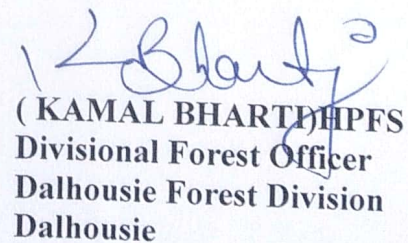 K Bharti
( KAMAL BHARTI)HPFS
Divisional Forest Officer
Dalhousie Forest Division
Dalhousie